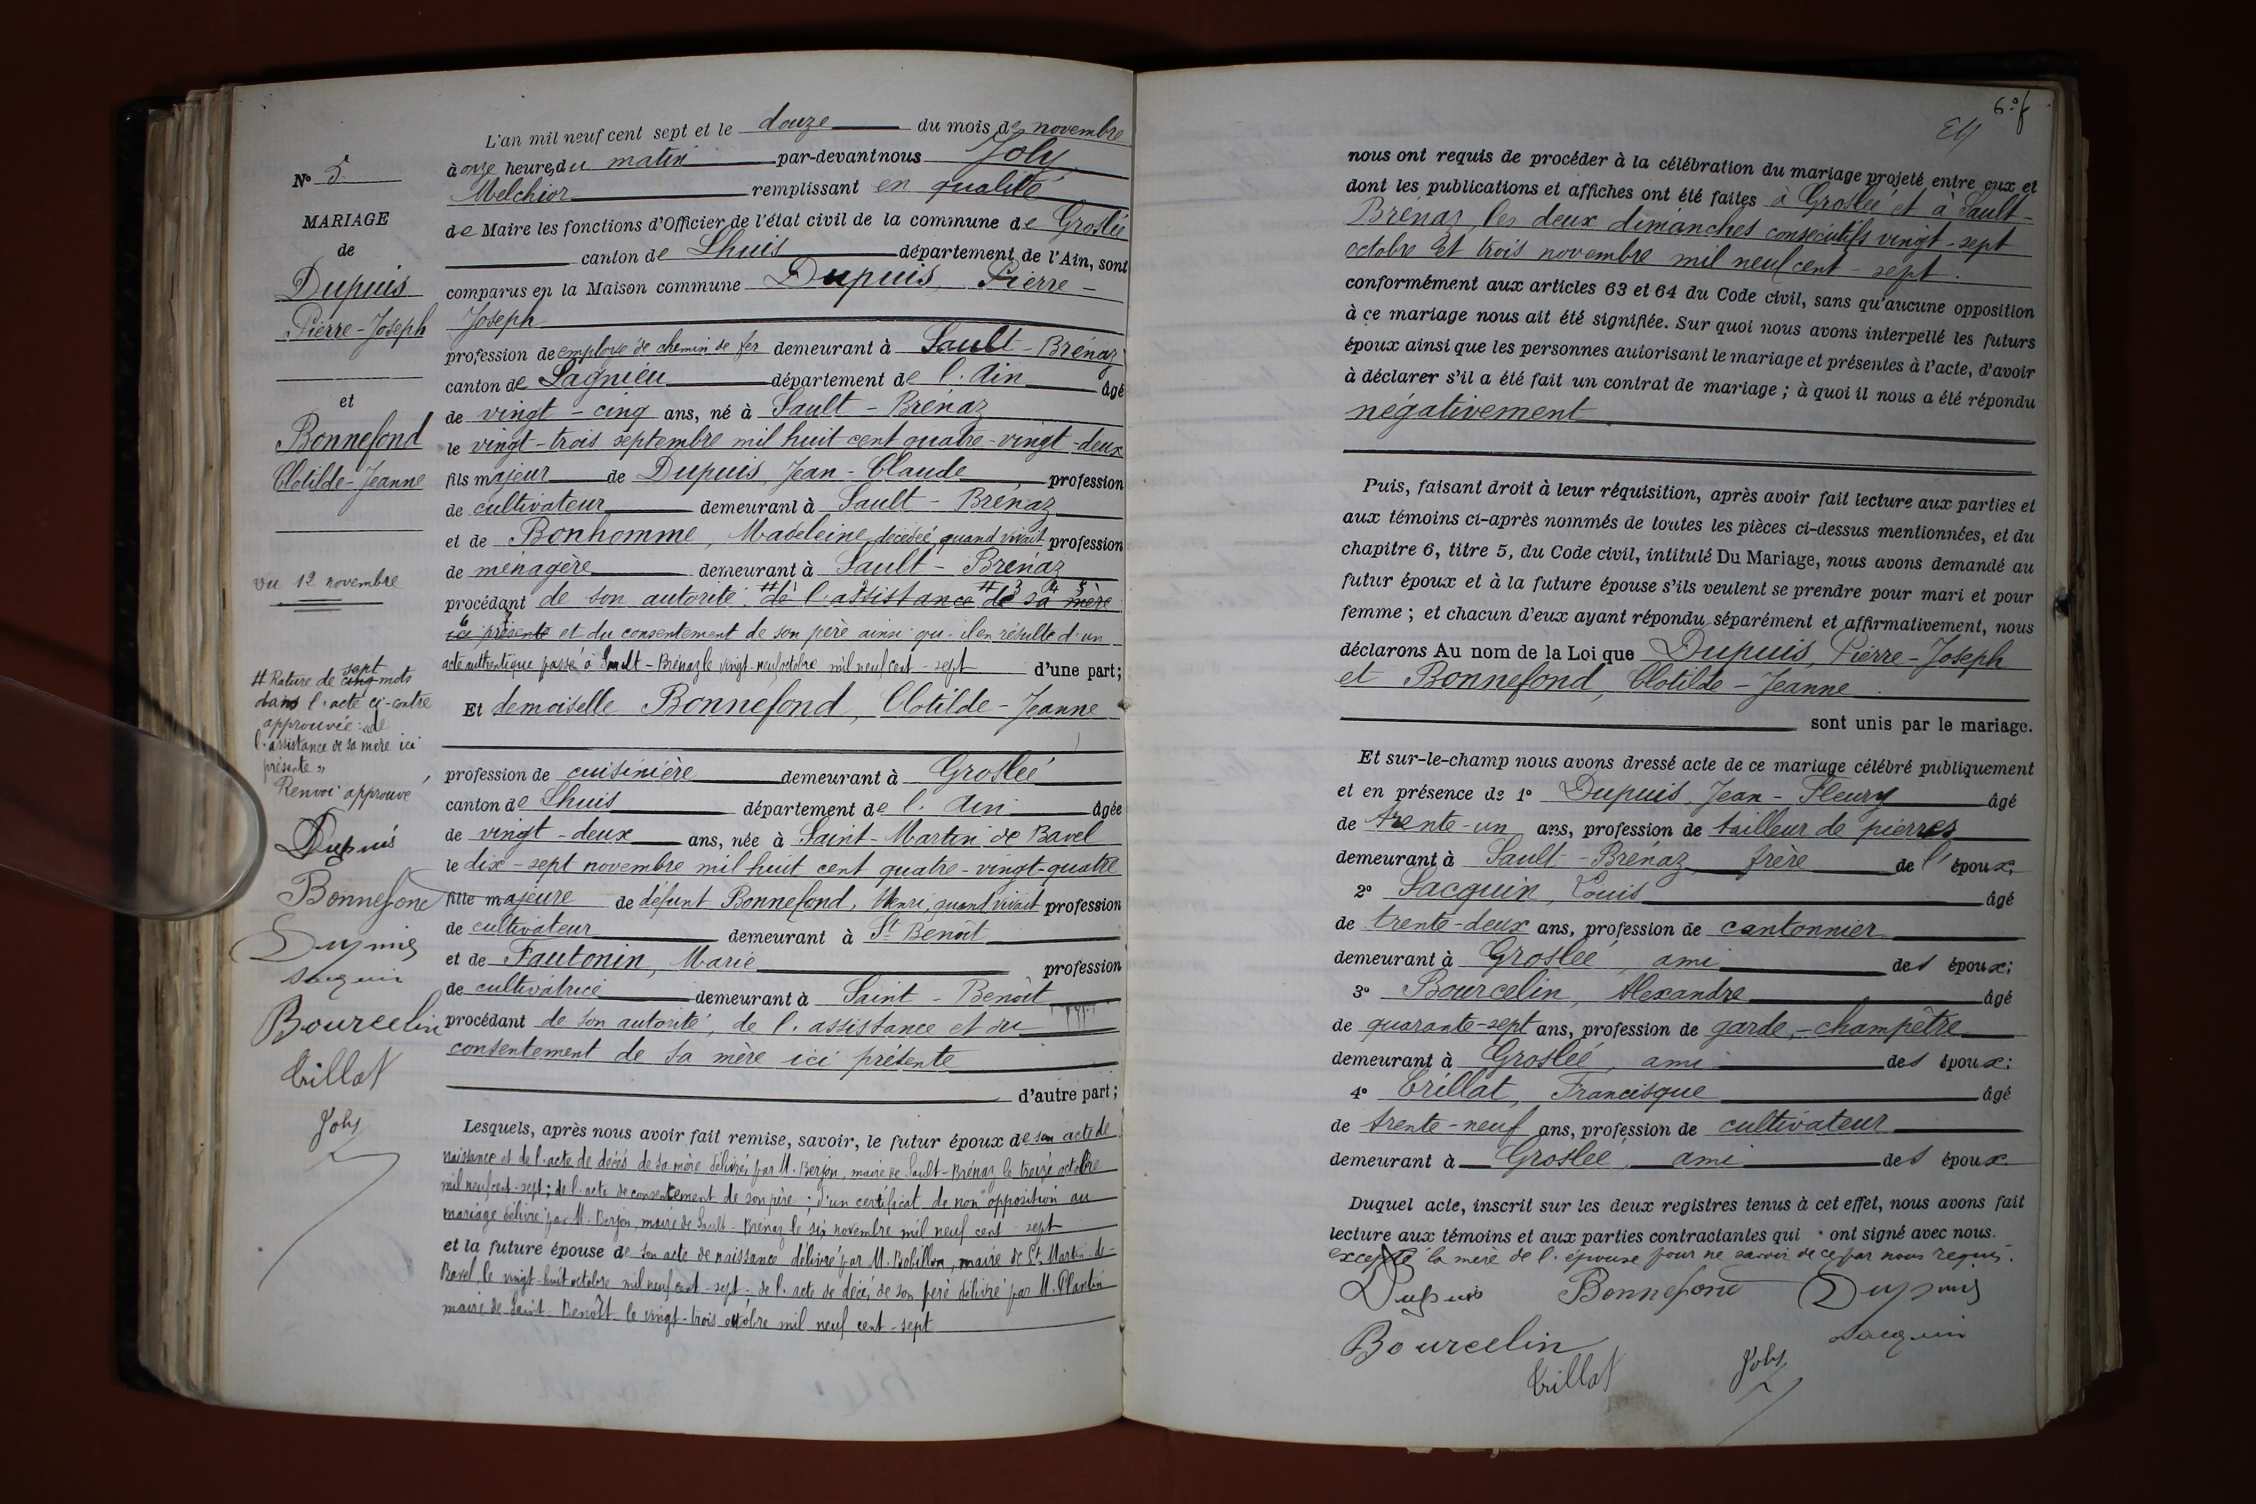 N° 5
MARIAGE
de
Dupuis
Pierre-Joseph
et
Bonnefond
Clotilde-Jeanne
Vu 12 novembre
# Rature de cinq sept mots
dans l'acte ci-contre
approuvée: de
l'assistance de sa mère ici
présente"
Renvoi approuvé
Dupuis
Bonnefond
Dupuis
Sacquin
Bourcelin
Trillat
Joly
L'an mil neuf cent sept et le douze du mois de novembre
à onze heures du matin par-devant nous Joly
Melchior remplissant en qualité
de Maire les fonctions d'Officier de l'état civil de la commune de Groslée
canton de Lhuis département de l'Ain, sont
comparus en la Maison commune Dupuis, Pierre-
Joseph
profession de employé de chemin de fer demeurant à Sault-Brénaz
canton de Lagnieu département de l'Ain âgé
de vingt-cinq ans, né à Sault-Brénaz
le vingt-trois septembre mil huit cent quatre-vingt-deux
fils majeur de Dupuis, Jean-Claude profession
de cultivateur demeurant à Sault-Brénaz
et de Bonhomme, Madeleine, décédée, quand vivait profession
de ménagère demeurant à Sault-Brénaz
procédant de son autorité, # de l'assistance # de sa mère
ici présente et du consentement de son père ainsi qu'il en résulte d'un
acte authentique passé à Sault-Brénaz le vingt-neuf octobre mil neuf cent-sept d'une part;
Et demoiselle Bonnefond, Clotilde-Jeanne
profession de cuisinière demeurant à Groslée
canton de Lhuis département de l'Ain âgée
de vingt-deux ans, née à Saint-Martin de Bavel
le dix-sept novembre mil huit cent quatre-vingt-quatre
fille majeure de défunt Bonnefond, Henri, quand vivait profession
de cultivateur demeurant à St Benoît
et de Fautonin, Marie profession
de cultivatrice demeurant à Saint-Benoît
procédant de son autorité, de l'assistance et du
consentement de sa mère ici présente
d'autre part;
Lesquels, après nous avoir fait remise, savoir, le futur époux de son acte de
naissance et de l'acte de décès de sa mère délivrés par M. Berjon, maire de Sault-Brénaz le treize octobre
mil neuf cent-sept; de l'acte de consentement de son père; d'un certificat de non opposition au
mariage délivré par M. Berjon, maire de Sault-Brénaz le six novembre mil neuf cent sept
et la future épouse de son acte de naissance délivré par M. Bobillon, maire de St Martin-de-
Bavel, le vingt-huit octobre mil neuf cent-sept; de l'acte de décès de son père délivré par M. Plantin
maire de Saint-Benoît le vingt-trois octobre mil neuf cent-sept
6° f
nous ont requis de procéder à la célébration du mariage projeté entre eux et
dont les publications et affiches ont été faites à Groslée et à Sault-
Brénaz les deux dimanches consécutifs vingt-sept
octobre et trois novembre mil neuf cent-sept.
conformément aux articles 63 et 64 du Code civil, sans qu'aucune opposition
à ce mariage nous ait été signifiée. Sur quoi nous avons interpellé les futurs
époux ainsi que les personnes autorisant le mariage et présentes à l'acte, d'avoir
à déclarer s'il a été fait un contrat de mariage; à quoi il nous a été répondu
négativement
Puis, faisant droit à leur réquisition, après avoir fait lecture aux parties et
aux témoins ci-après nommés de toutes les pièces ci-dessus mentionnées, et du
chapitre 6, titre 5, du Code civil, intitulé Du Mariage, nous avons demandé au
futur époux et à la future épouse s'ils veulent se prendre pour mari et pour
femme; et chacun d'eux ayant répondu séparément et affirmativement, nous
déclarons Au nom de la Loi que Dupuis, Pierre-Joseph
et Bonnefond, Clotilde-Jeanne
sont unis par le mariage.
Et sur-le-champ nous avons dressé acte de ce mariage célébré publiquement
et en présence de 1° Dupuis, Jean-Fleury âgé
de trente-un ans, profession de tailleur de pierres
demeurant à Sault-Brénaz, frère de l'époux;
2° Sacquin, Louis âgé
de trente-deux ans, profession de cantonnier
demeurant à Groslée, ami des époux;
3° Bourcelin, Alexandre âgé
de quarante-sept ans, profession de garde-champêtre
demeurant à Groslée, ami des époux;
4° Trillat, Francisque âgé
de trente-neuf ans, profession de cultivateur
demeurant à Groslée, ami des époux.
Duquel acte, inscrit sur les deux registres tenus à cet effet, nous avons fait
lecture aux témoins et aux parties contractantes qui ont signé avec nous.
excepté la mère de l'épouse pour ne savoir de ce par nous requis.
Dupuis Bonnefond Dupuis
Bourcelin Sacquin
Trillat Joly